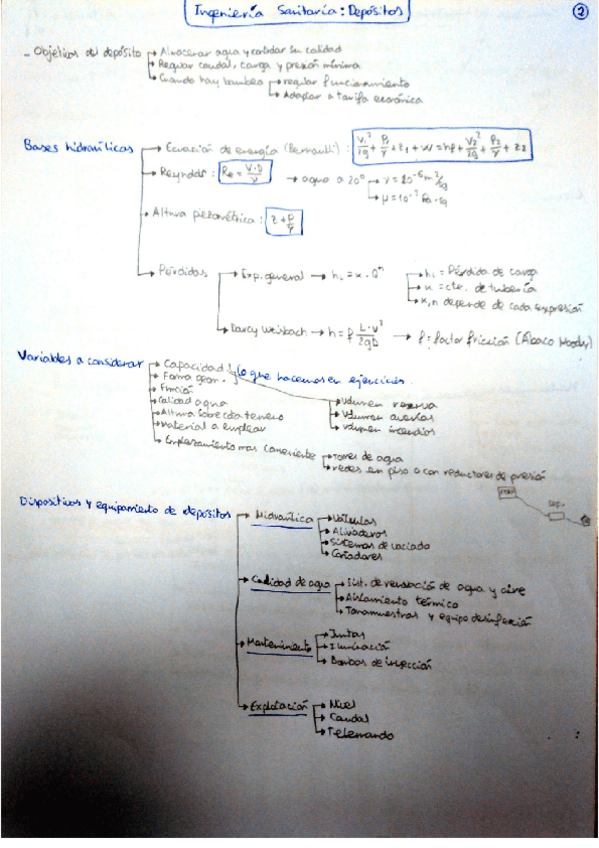 Ingeniería Sanitaria: Depósitos
2
- Objetivos del depósito → Almacenar agua y controlar su calidad
→ Regular caudal, carga y presión mínima
→ Cuando hay bombeo → regular funcionamiento
→ Adaptar a tarifa económica
Bases hidraúlicas → Ecuación de energía (Bernoulli) : V₁²/2g + P₁/γ + z₁ + W = hf + V₂²/2g + P₂/γ + z₂
→ Reynolds : Re = V·D/γ → agua a 20° → ν = 10⁻⁶ m²/sg
→ μ = 10⁻³ Pa·sg
→ Altura piezométrica : z + P/γ
→ Pérdidas → Exp. general → hL = k·Qⁿ → hL = Pérdida de carga
→ k = cte. de tubería
→ k,n depende de cada expresión
→ Darcy Weisbach → h = f L·v²/2gD → f = factor fricción (Ábaco Moody)
Variables a considerar → Capacidad
→ Forma geom. } lo que hacemos en ejercicios.
→ Función
→ Calidad agua
→ Altura sobre cota terreno
→ Material a emplear
→ Volumen reserva
→ Volumen averías
→ Volumen incendios
→ Emplazamiento mas conveniente → Torres de agua
→ redes en piso o con reductores de presión
Dispositivos y equipamiento de depósitos → Hidraúlica → Válvulas
→ Aliviaderos
→ Sistemas de vaciado
→ Contadores
→ Calidad de agua → Sist. de renovación de agua y aire
→ Aislamiento térmico
→ Tomamuestras y equipo desinfección
→ Mantenimiento → Juntas
→ Iluminación
→ Bombas de inyección
→ Explotación → Nivel
→ Caudal
→ Telemando